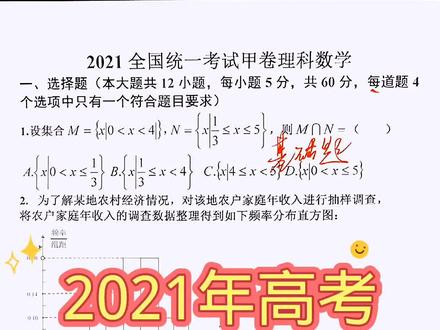 2021 全国统一考试甲卷理科数学
一、选择题（本大题共 12 小题，每小题 5 分，共 60 分，每道题 4
个选项中只有一个符合题目要求）
1.设集合 M={x|0<x<4}，N={x|1/3≤x≤5}，则 M∩N=（ ）
基础题
A.{x|0<x≤1/3} B.{x|1/3≤x<4} C.{x|4≤x<5} D.{x|0<x≤5}
2. 为了解某地农村经济情况，对该地农户家庭年收入进行抽样调查，
将农户家庭年收入的调查数据整理得到如下频率分布直方图：
频率
组距
0.20
0.14
0.10
2021年高考